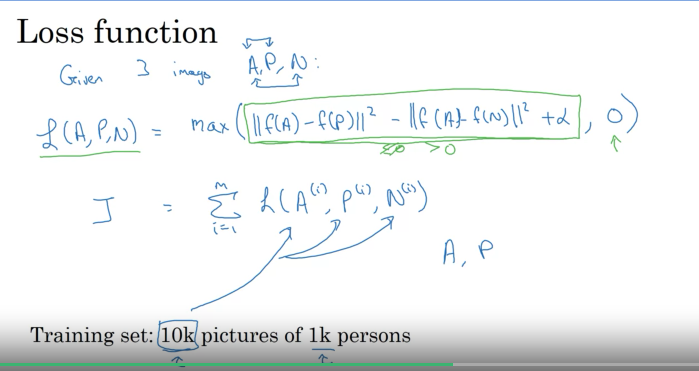 Loss function
Given 3 images A, P, N:
L(A, P, N) = max(||f(A) - f(P)||² - ||f(A) - f(N)||² + α, 0)
≤0 >0
J = Σ_{i=1}^{m} L(A^{(i)}, P^{(i)}, N^{(i)})
A, P
Training set: 10k pictures of 1k persons